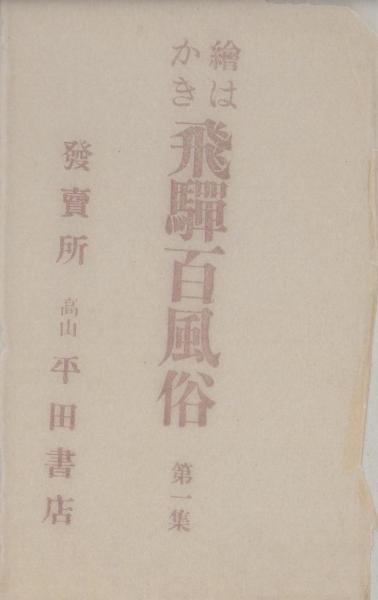 繪はかき 飛驒百風俗 第一集
發賣所 高山 平田書店